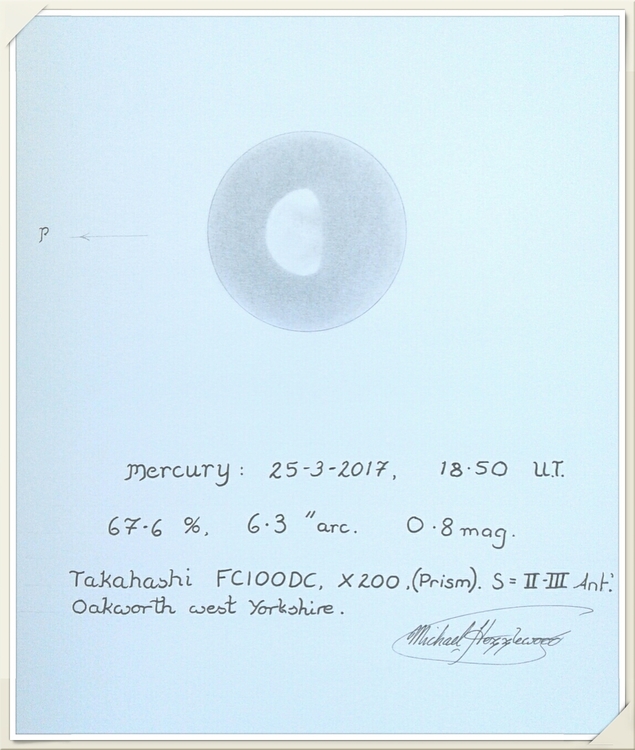 P
Mercury: 25-3-2017, 18·50 U.T.
67·6 %, 6·3 "arc. 0·8 mag.
Takahashi FC100DC, X200,(Prism). S = II-III Ant:
Oakworth west Yorkshire.
Michael